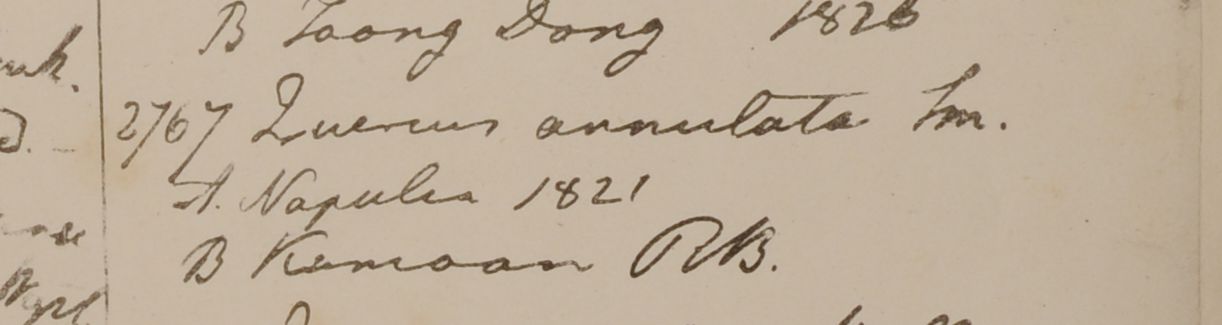 B Toong Dong 1826
2767 Quercus annulata Sm.
A. Napulia 1821
B Kamoan RB.